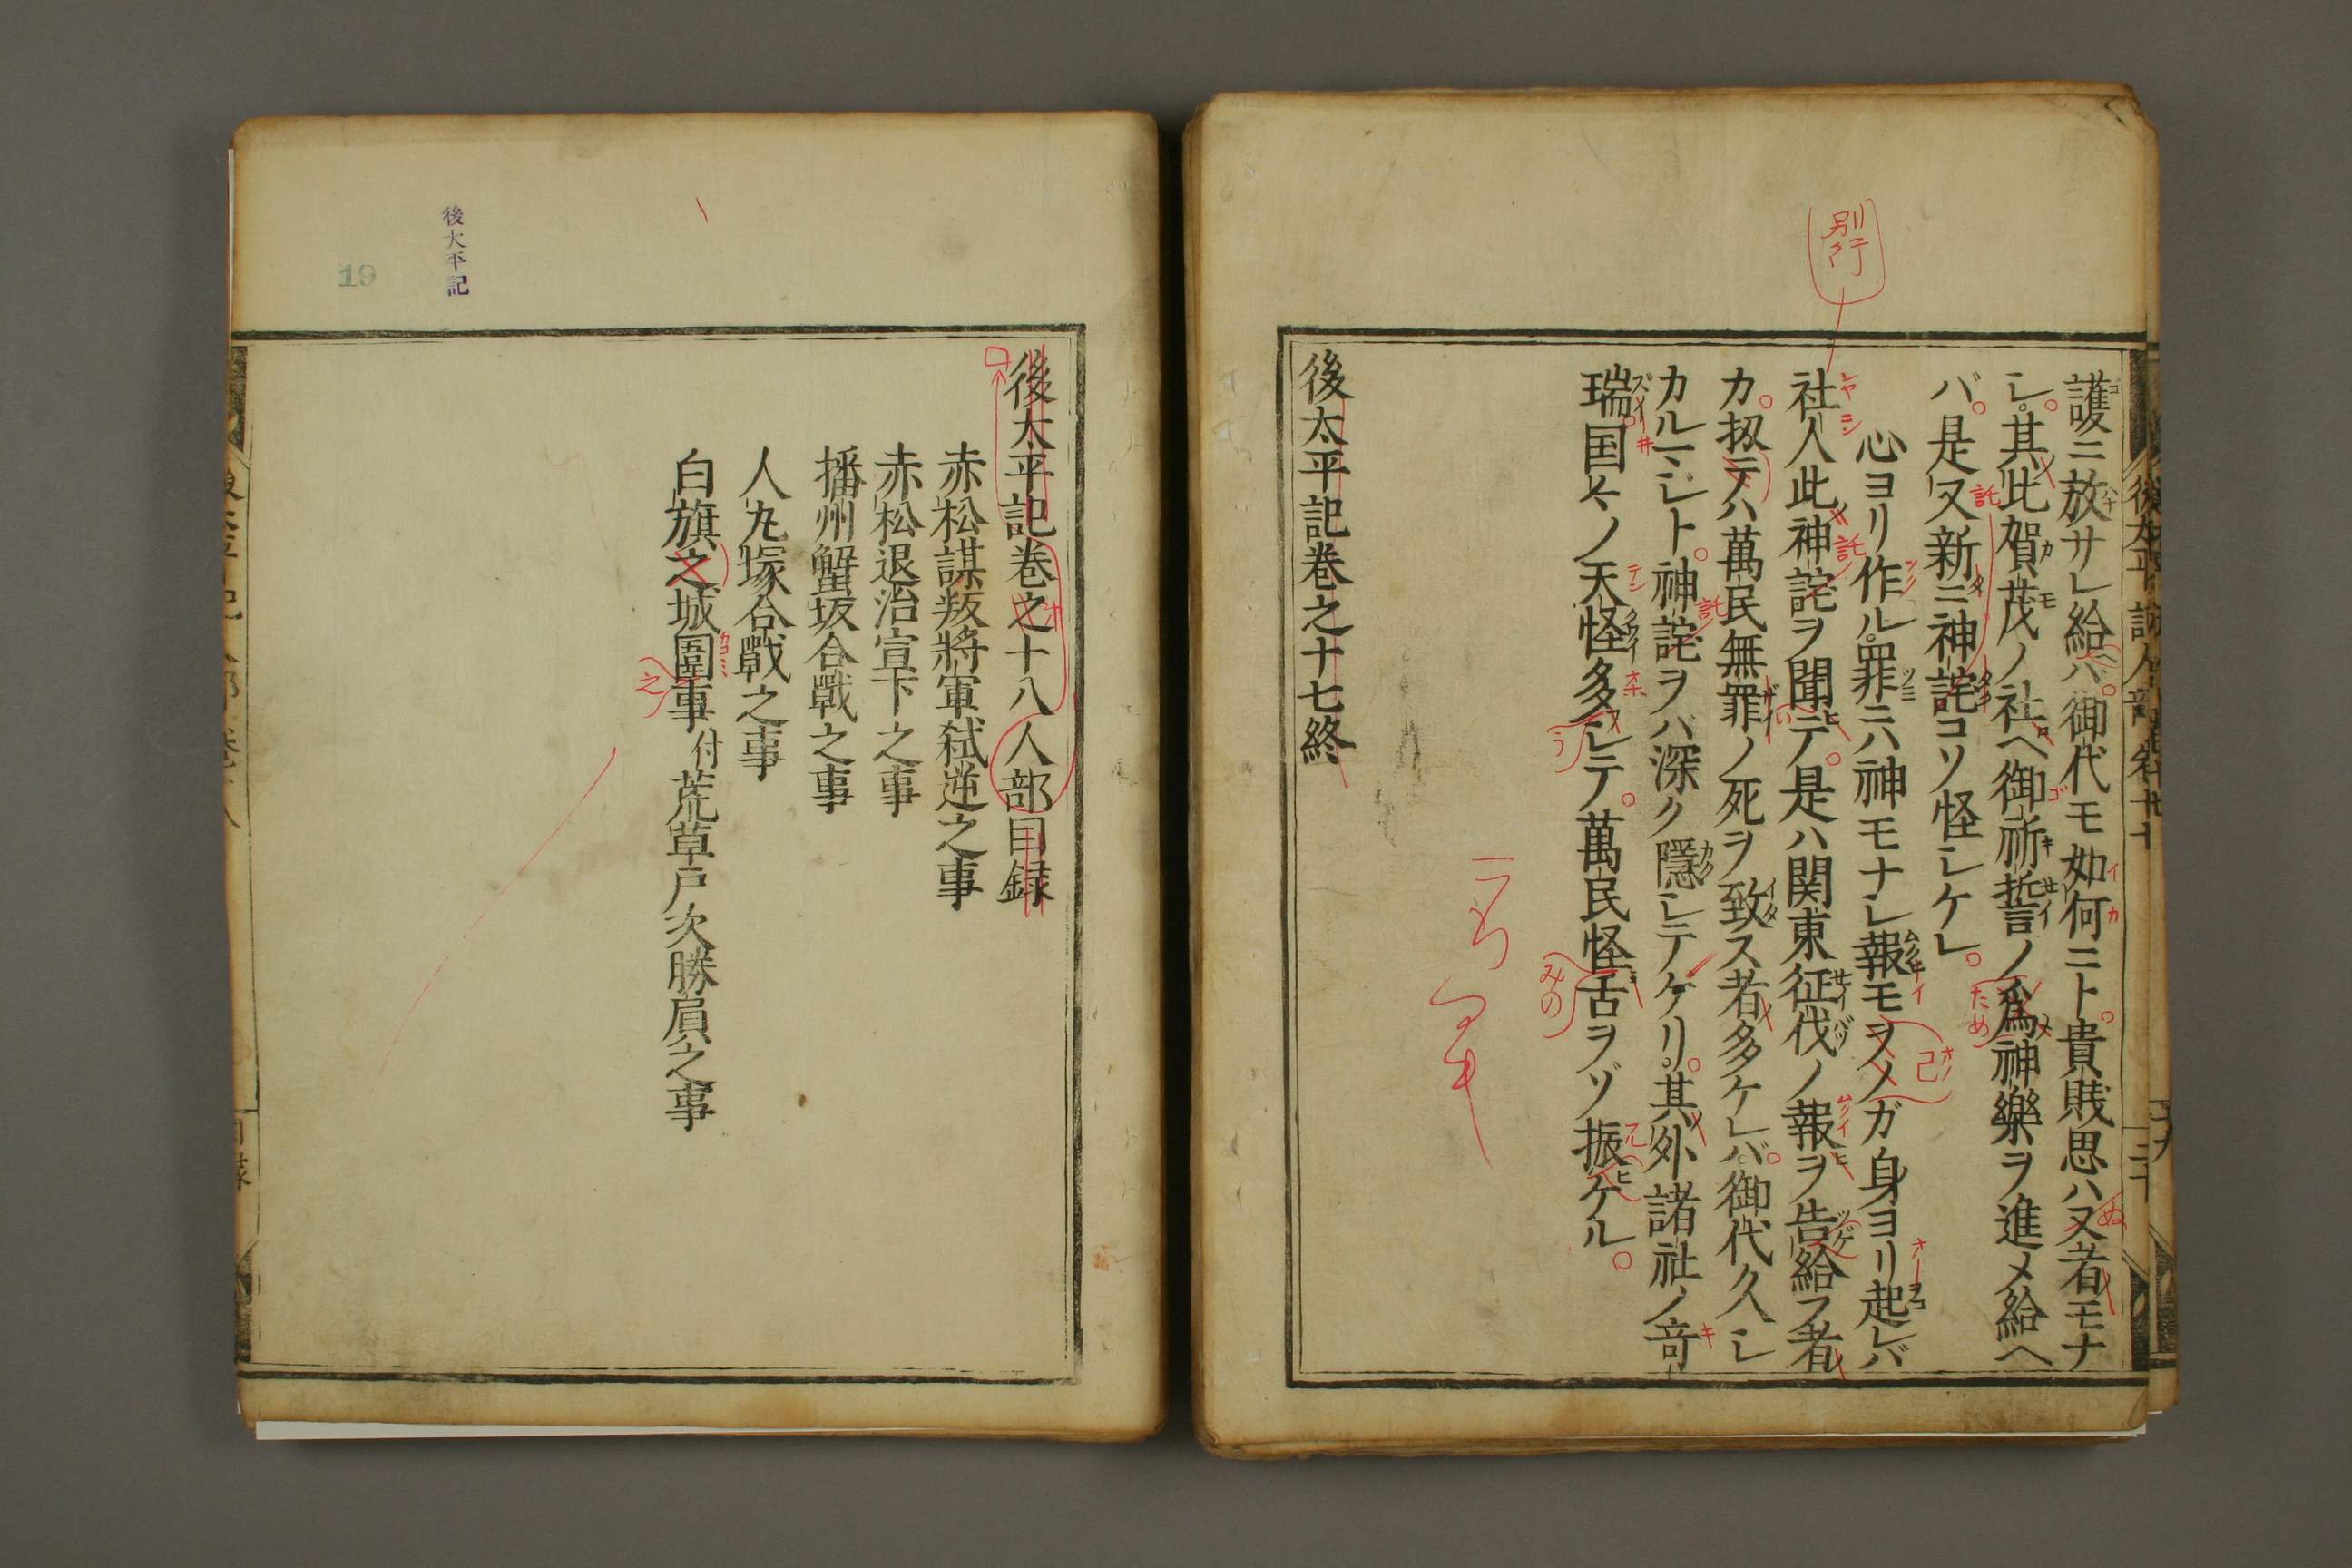 別行
護ニ放サレ給ハバ御代モ如何ニト貴賎思ハヌ者モナ
シ其比賀茂ノ社ヘ御祈誓ノ爲神樂ヲ進メ給ヘ
バ是又新ニ神詫コソ怪シケレ
心ヨリ作ル罪ニハ神モナレ報モヲノガ身ヨリ起レバ
社人此神詫ヲ聞テ是ハ関東征伐ノ報ヲ告給フ者
カ扨テハ萬民無罪ノ死ヲ致ス者多ケレバ御代久シ
カルマシト神詫ヲバ深ク隠シテケリ其外諸社ノ奇
瑞国々ノ天怪多シテ萬民怪舌ヲゾ振ケル
後太平記巻之十七終
後太平記
19
後太平記巻之十八人部目録
赤松謀叛將軍弑逆之事
赤松退治宣下之事
播州蟹坂合戰之事
人丸塚合戰之事
白旗之城圍事付荒草戸次勝負之事